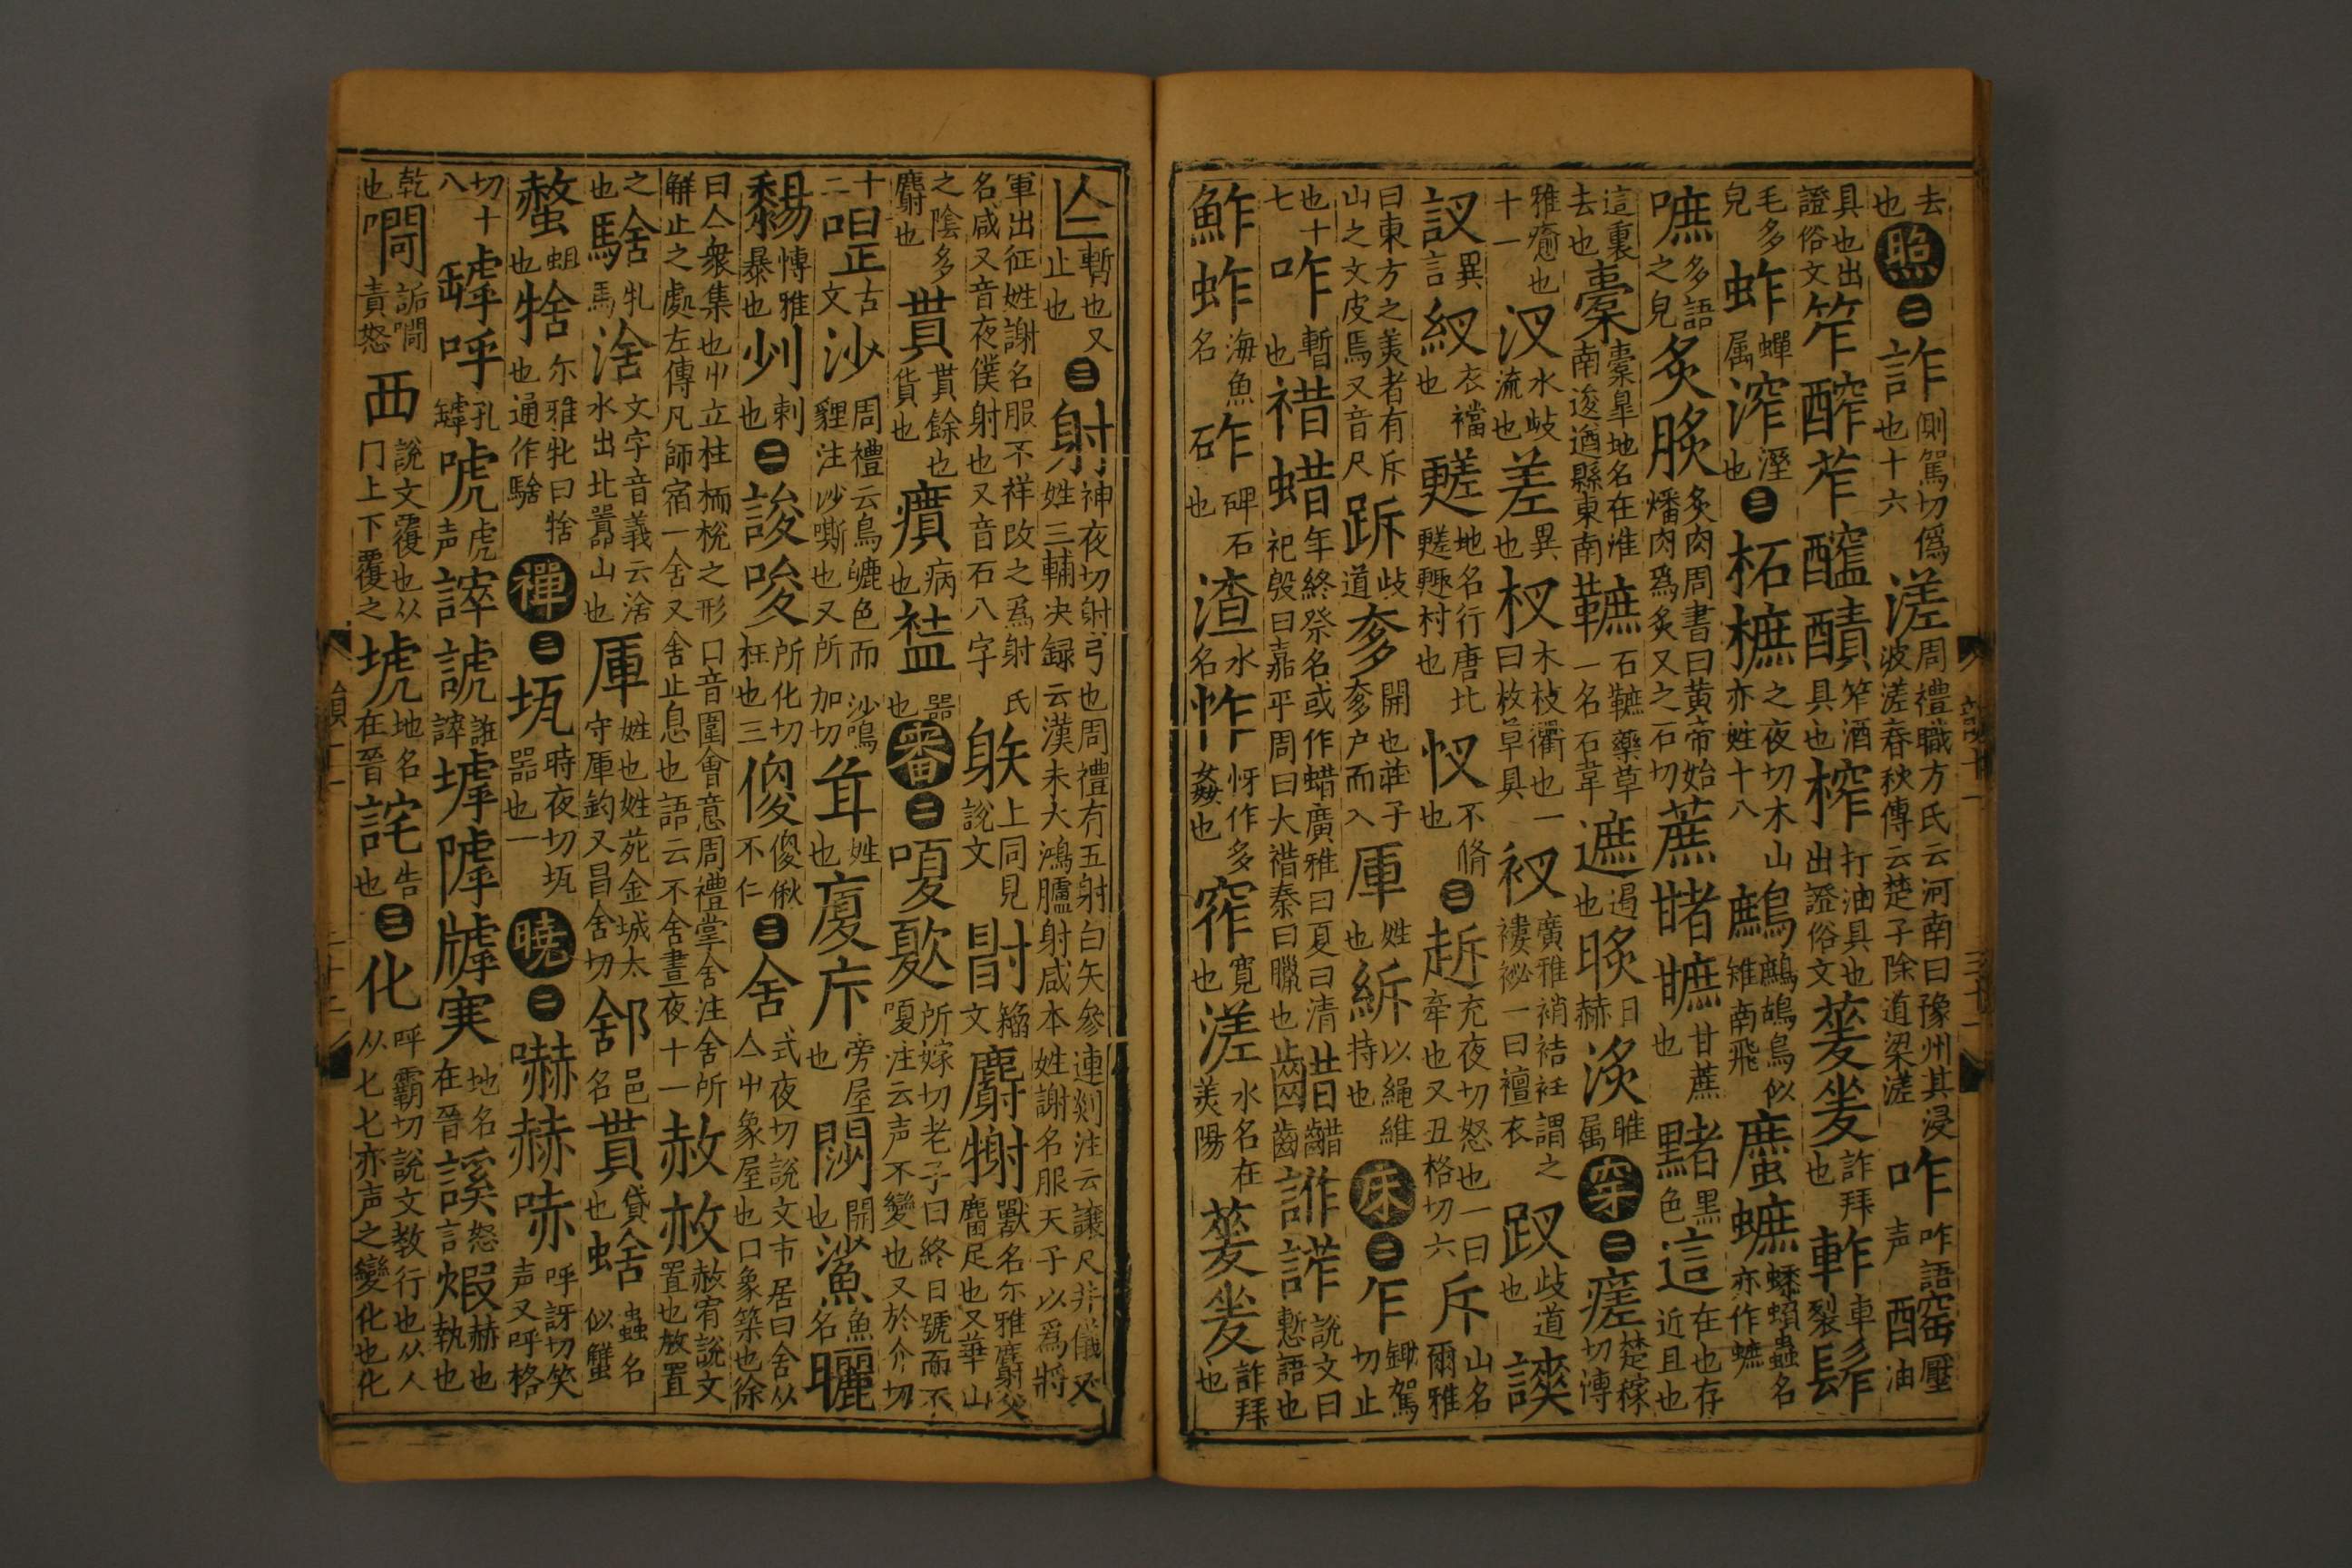 去也照二詐側駕切偽也十六溠周禮職方氏云河南曰豫州其浸波溠春秋傳云楚子除道梁溠咋咋語声醡窄壓油
具也出證俗文笮醡苲醯醋笮酒具也榨打油具也出證俗文蓌夎詐拜也軬車裂髿
毛多皃蚱蟬属溠溼也三柘樜之夜切木山亦姓十八鷓鷓鴣鳥似雉南飛䗪蟅蟅蟲名亦作蟅
嗻多語之皃炙䏑炙肉周書曰黃帝始燔肉爲炙又之石切蔗䐗䗪甘蔗也䵭黑色這在也存近且也
這裏去也橐橐皐地名在淮南逡遒縣東南䩾石䩾藥草一名石韋遮遏也䀹日赫㳄睢属穿二瘥楚稼切漙
雅癒也十一汊水歧流也差異也杈木枝衢也一曰杈草具衩廣雅䘯袺衽謂之褸䘣一曰襢衣跴歧道也䜟
訍異言紁衣襠也䞣地名行唐北䞣䞣村也忊不脩也三趀充夜切怒也一曰牽也又丑格切六斥山名爾雅
曰東方之美者有斥山之文皮焉又音尺跅歧道奓開也莊子奓户而入厙姓也䋤以繩維持也床二乍鋤駕切止
也十七咋暫也䄍蜡年終祭名或作蜡廣雅曰夏曰清祀殷曰嘉平周曰大䄍秦曰臘也齰齰齒䛐諎說文曰慙語也
鮓蚱海魚名砟碑石也渣水名怍怍多姦也窄寬也溠水名在美陽蓌夎詐拜也
亼暫也又止也三射神夜切射弓也周禮有五射白矢參連剡注云讓尺井儀又姓三輔决録云漢末大鴻臚射咸本姓謝名服天子以爲將
軍出征姓謝名服不祥改之爲射氏名咸又音夜僕射也又音石八字䠶上同見說文䦏籀文麝䣃獸名尔雅麝父麕足也又華山
之陰多麝也貰貰餘也貨也㿉病也䘣器也審二嗄㰺所嫁切老子曰終日號而不嗄注云声不變也又於介切
十二㖏古文沙周禮云鳥皫色而沙鳴貍注沙嘶也又所加切䎬姓也廈㡿旁屋也閯開也鯊魚名曬
䵘愽雅暴也𠛎刺也二誜唆所化切枉也三傻傻俶不仁三舍式夜切說文市居曰舍从亼屮象屋也口象築也徐
曰亼衆集也屮立柱楄棁之形口音圍會意周禮掌舍注舍所解止之處左傳凡師宿一舍又舍止息也語云不舍晝夜十一赦赦赦宥說文置也放置
之也騇牝馬捨文字音義云捨水出北嚻山也厙姓也姓苑金城太守厙鈞又昌舍切䣃邑名貰貸也蛥蟲名似蟹
螫蛆也㸱尔雅牝曰㸱也通作騇禪三坬時夜切坬器也一曉二嚇赫㖀呼訝切笑声又呼格
切十八罅呼孔罅唬虎声謼諕誰謼墟㙤墟㝜地名在晉謑怒言煆赫也熱也
乾也㗴詬㗴責怒襾說文覆也从冂上下覆之㙈地名在晉詫告也三化呼霸切說文教行也从人从匕匕亦声之變化也化